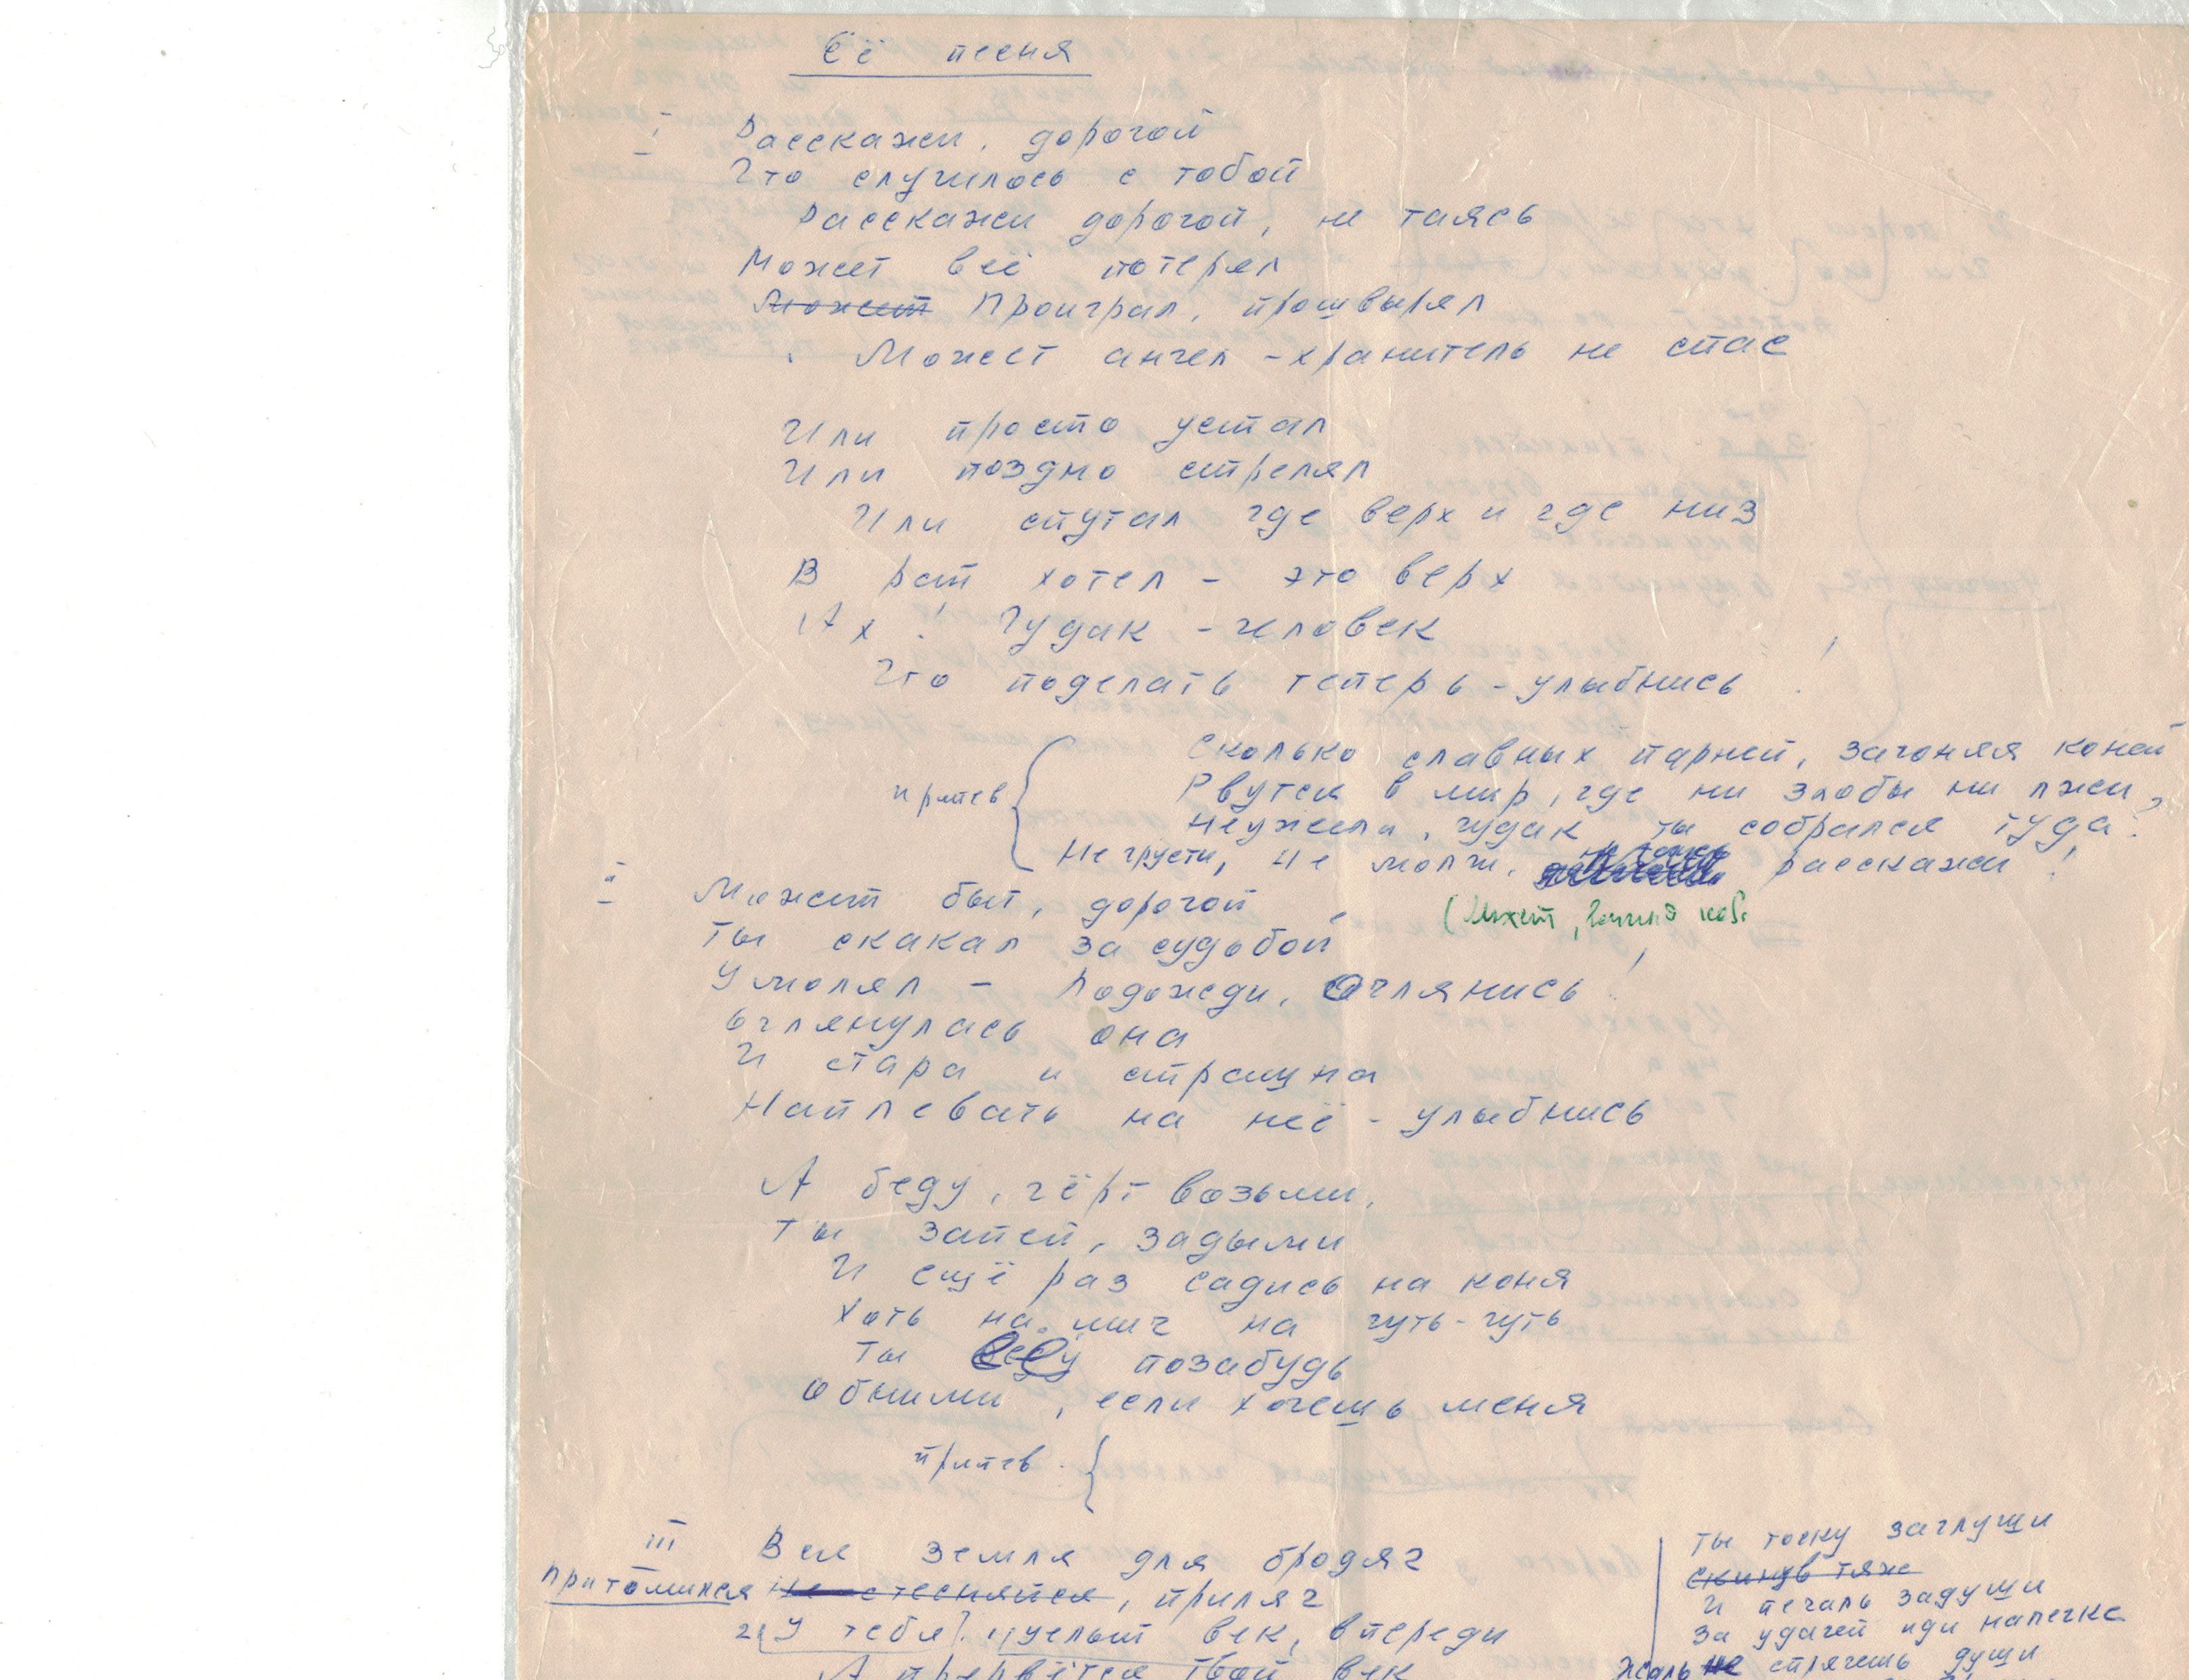 Её песня
I Расскажи, дорогой
Что случилось с тобой
Расскажи дорогой, не таясь
Может всё потерял
Может Проиграл, прошвырял
Может ангел-хранитель не спас
Или просто устал
Или поздно стрелял
Или спутал где верх и где низ
В рай хотел - это верх
Ах! Чудак-человек
Что поделать теперь - улыбнись!
припев
Сколько славных парней, загоняя коней
Рвутся в мир, где ни злобы ни лжи,
Неужели, чудак, ты собрался туда?
Не грусти, не молчи, расскажи!
II Может быт, дорогой
(Может,
Ты скакал за судьбой
Умолял - Подожди, оглянись!
Оглянулась она
И стара и страшна
Наплевать на неё - улыбнись
А беду, чёрт возьми,
Ты запей, задыми
И ещё раз садись на коня
Хоть на миг на чуть-чуть
Ты позабудь
Обними, если хочешь меня
припев
III Вся земля для бродяг
Притомился Не стесняйся, приляг
2) У тебя 1) целый век, впереди
А прервётся твой век
Ты тоску заглуши
Скинув тяж
И печаль задуши
За удачей иди налегке
Жаль не спрячешь души